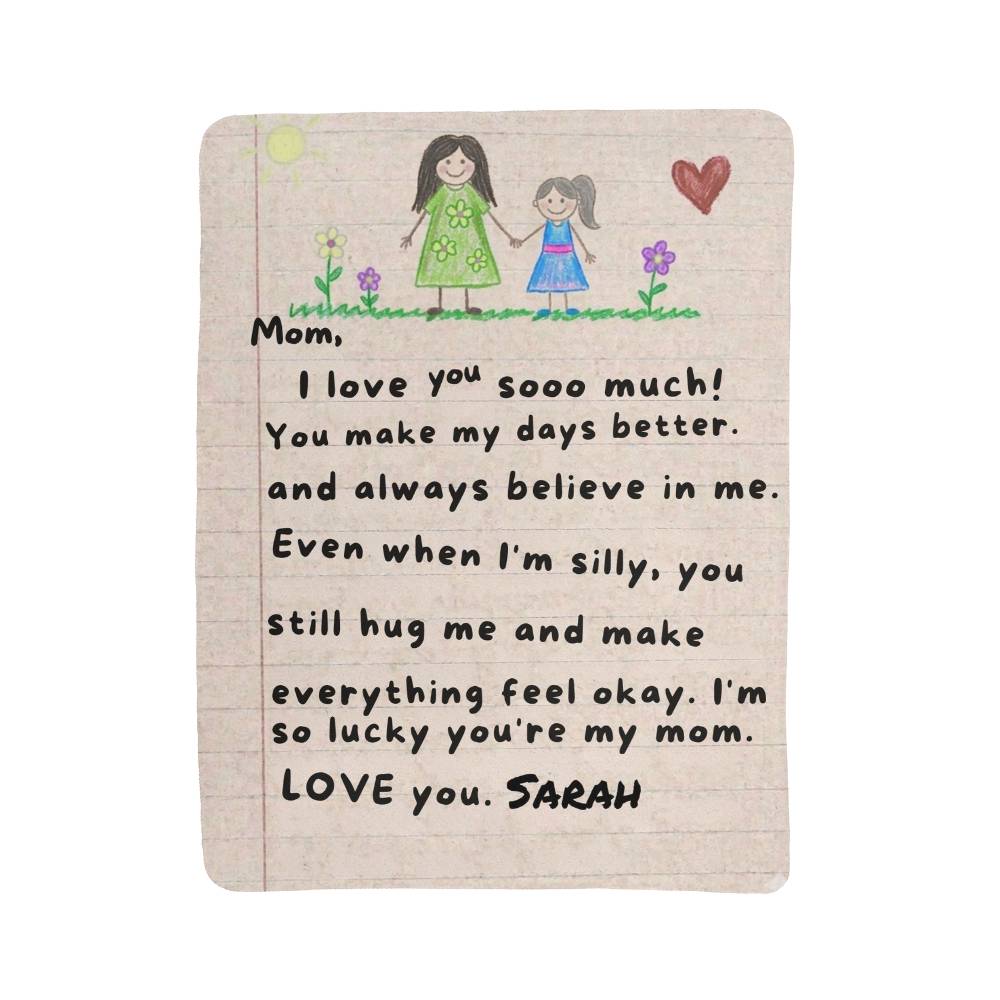 Mom,
I love you sooo much!
You make my days better.
and always believe in me.
Even when I'm silly, you
still hug me and make
everything feel okay. I'm
so lucky you're my mom.
LOVE you. SARAH